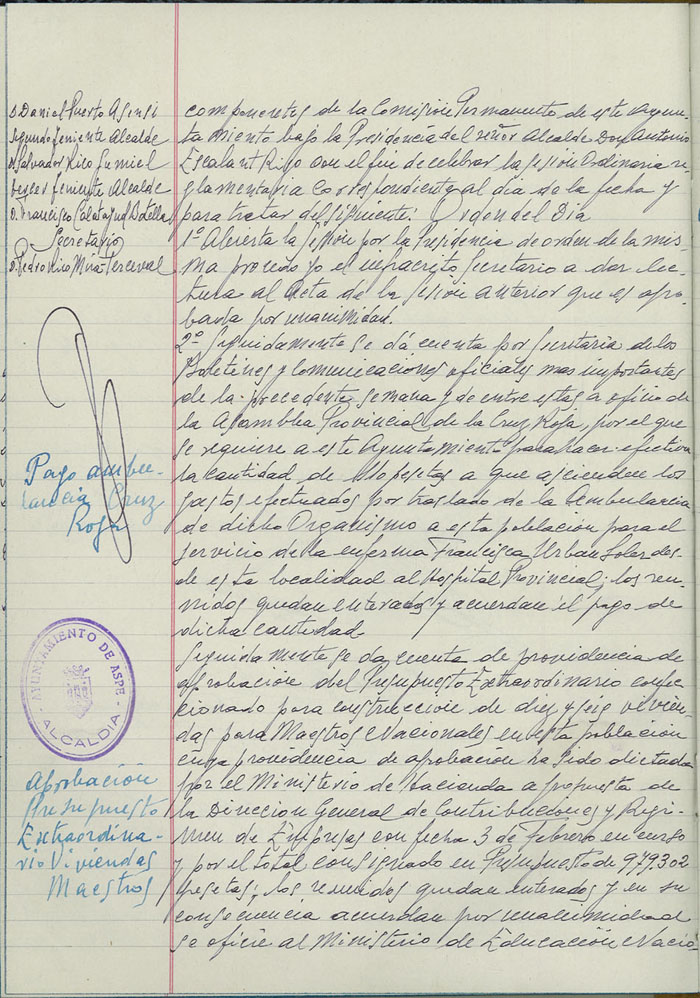 D. Daniel Puerto Asensi
Segundo Teniente Alcalde
D. Salvador Rico Gumiel
Tercer Teniente Alcalde
D. Francisco Calatayud Botella
Secretario
D. Pedro Miró Mira-Perceval
Pago ambu-
lancia Cruz
Roja
AYUNTAMIENTO DE ASPE
ALCALDIA
Aprobación
Presupuesto
Extraordina-
rio Viviendas
Maestros
componentes de la Comisión Permanente de este Ayun-
tamiento bajo la Presidencia del señor Alcalde Don Antonio
Escalant Rizo con el fin de celebrar la Sesión Ordinaria re-
glamentaria correspondiente al dia de la fecha y
para tratar del siguiente: Orden del Dia
1º Abierta la Sesión por la Presidencia de orden de la mis-
ma procedo yo el infracrito Secretario a dar lec-
tura al Acta de la Sesión anterior que es apro-
bada por unanimidad.
2º Seguidamente se dá cuenta por Secretaria de los
Boletines y Comunicaciones oficiales mas importantes
de la precedente semana y de entre estas a oficio de
la Asamblea Provincial de la Cruz Roja, por el que
se requiere a este Ayuntamiento para hacer efectiva
la cantidad de pesetas a que ascienden los
gastos efectuados por traslado de la Ambulancia
de dicho Organismo a esta población para el
servicio de la enferma Francisca Urban
de esta localidad al Hospital Provincial; los reu-
nidos quedan enterados y acuerdan el pago de
dicha cantidad
Seguidamente se da cuenta de providencia de
aprobación del Presupuesto Extraordinario confec-
cionado para construcción de diez y seis vivien-
das para Maestros Nacionales en esta población
cuya providencia de aprobación ha sido dictada
por el Ministerio de Hacienda a propuesta de
la Direccion General de Contribuciones y Regi-
men de Empresas con fecha 3 de Febrero en curso
y por el total consignado en Presupuesto de 979.302
pesetas; los reunidos quedan enterados y en su
consecuencia acuerdan por unanimidad
se oficie al Ministerio de Educación Nacio-